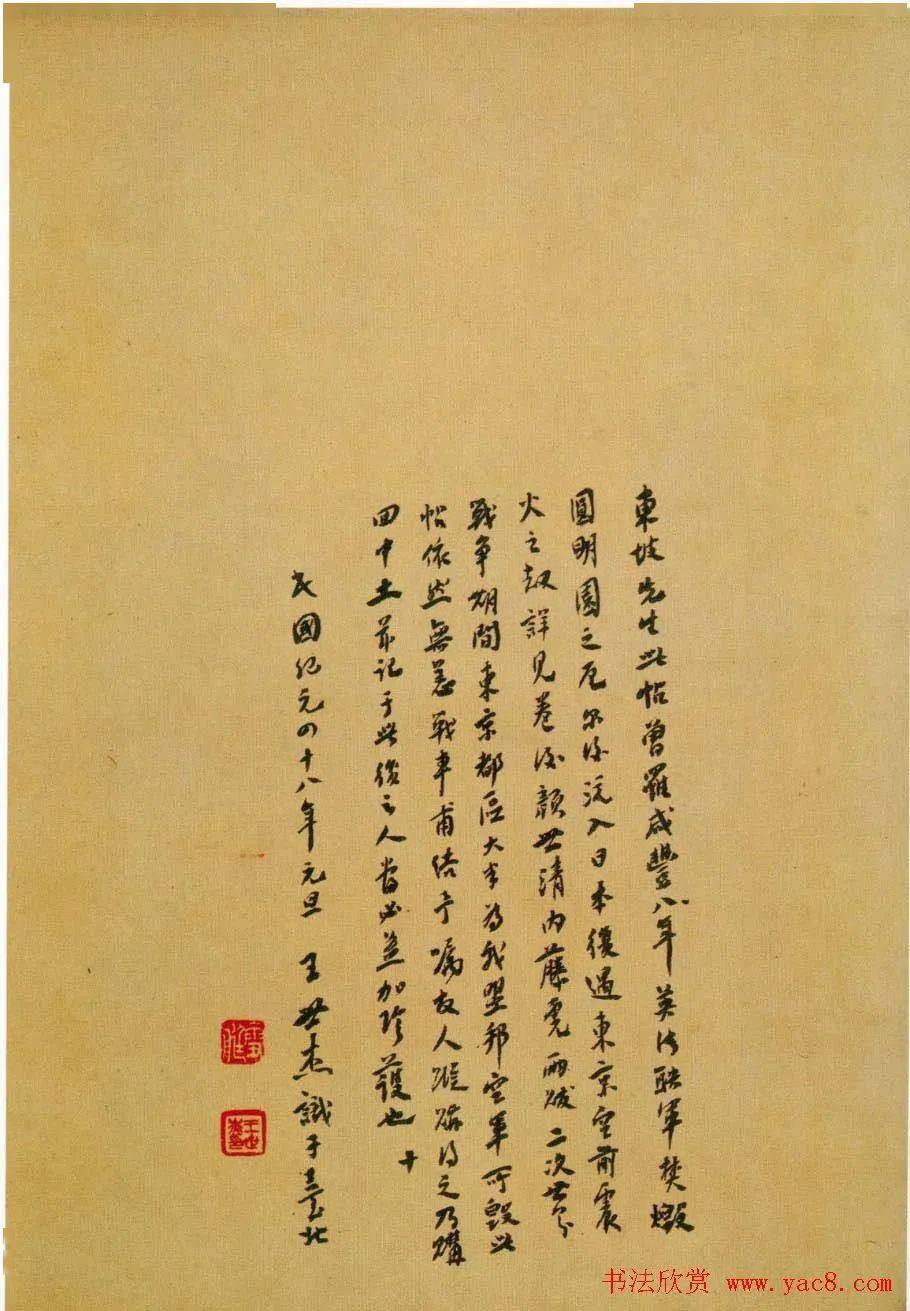 東坡先生此帖曾罹咸豐八年英法聯軍焚燬
圓明園之厄尔後流入日本復遇東京空前震
火之劫詳見卷後顏世清内藤虎兩跋二次世界
戰爭期間東京都區大半為我盟邦空軍所毀此
帖依然無恙戰事甫結予囑友人踪跡得之乃購
回中土并記于此後之人當必益加珍護也
民國紀元四十八年元旦 王世杰識于臺北
雪艇
王世杰
书法欣赏 www.yac8.com